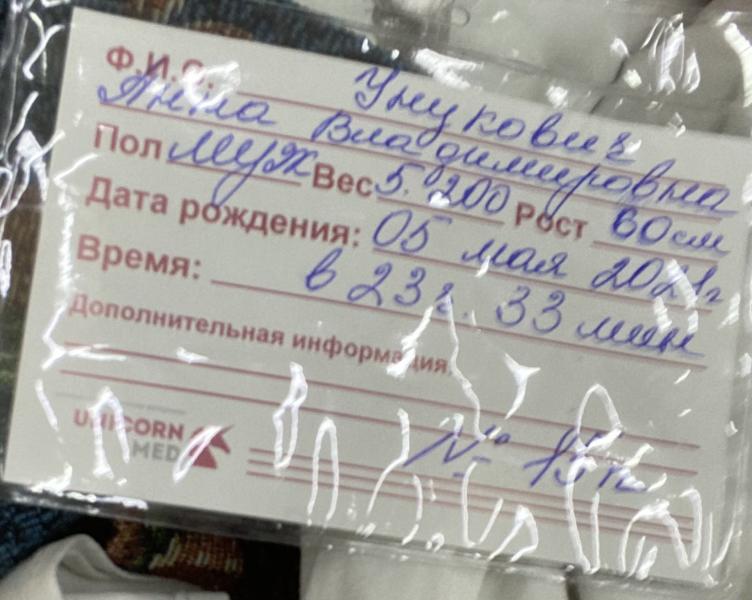 Ф.И.О. Унукович
Анна Владимировна
Пол муж Вес 5. 200 Рост 60 см
Дата рождения: 05 мая 2021г
Время: в 23г. 33 мин
Дополнительная информация:
UNICORN
MED
№ 15п